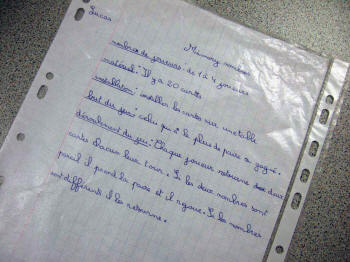 Lucas
Mémory nombres
nombre de joueurs: de 1 à 4 joueurs
matériel: Il y a 20 cartes
installation: installer les cartes sur une table
but du jeu: celui qui a le plus de paires a gagné.
déroulement du jeu: Chaque joueur retourne deux
cartes chacun leur tour. Si les deux nombres sont
pareil il prend la paire et il rejoue. Si les nombres
sont différents il les retourne.